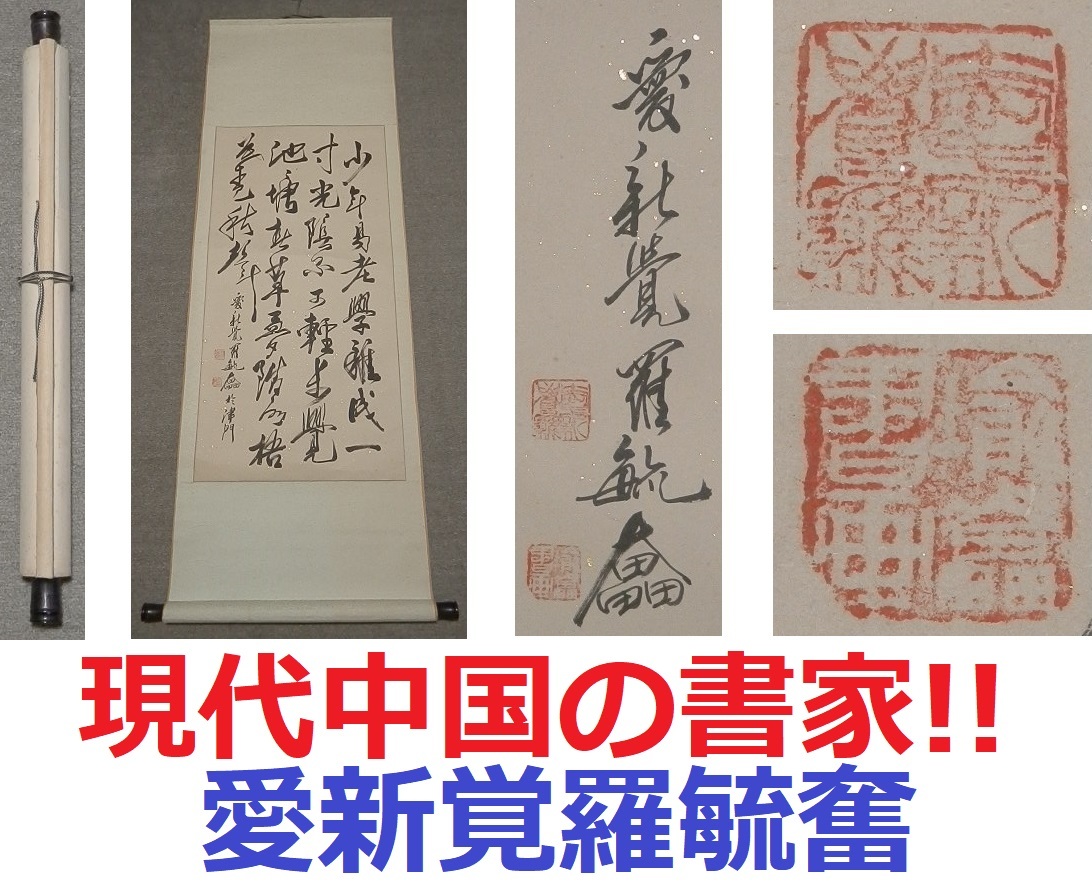 少年易老學難成一
寸光陰不可輕未覺
池塘春草夢階前梧
葉已秋聲
愛新覺羅毓奮於津門
愛新覺羅毓奮
現代中国の書家!!
愛新覚羅毓奮